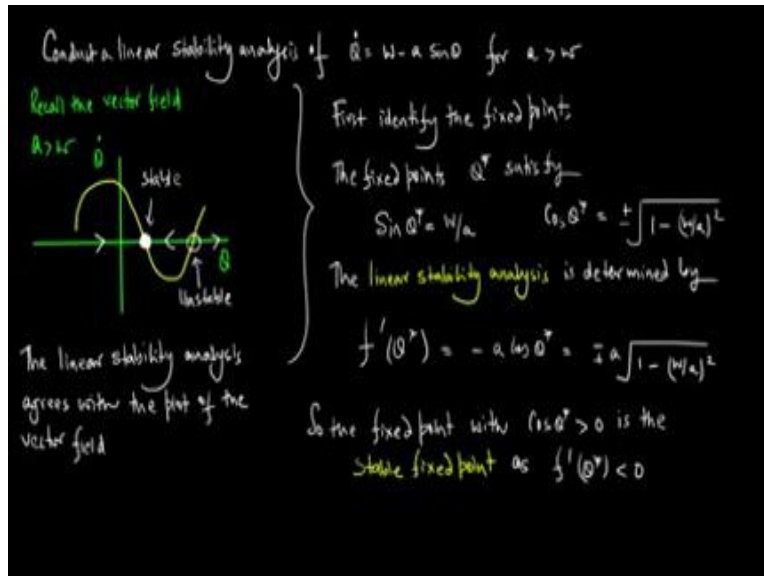 Conduct a linear stability analysis of θ̇ = ω - a sinθ for a > ω
Recall the vector field
a > ω
θ̇
stable
θ
Unstable
The linear stability analysis
agrees with the plot of the
vector field
First identify the fixed points
The fixed points θ* satisfy
Sin θ* = ω/a    Cos θ* = ± √(1 - (ω/a)²)
The linear stability analysis is determined by
f'(θ*) = - a cos θ* = ∓ a √(1 - (ω/a)²)
So the fixed point with Cos θ* > 0 is the
Stable fixed point as f'(θ*) < 0